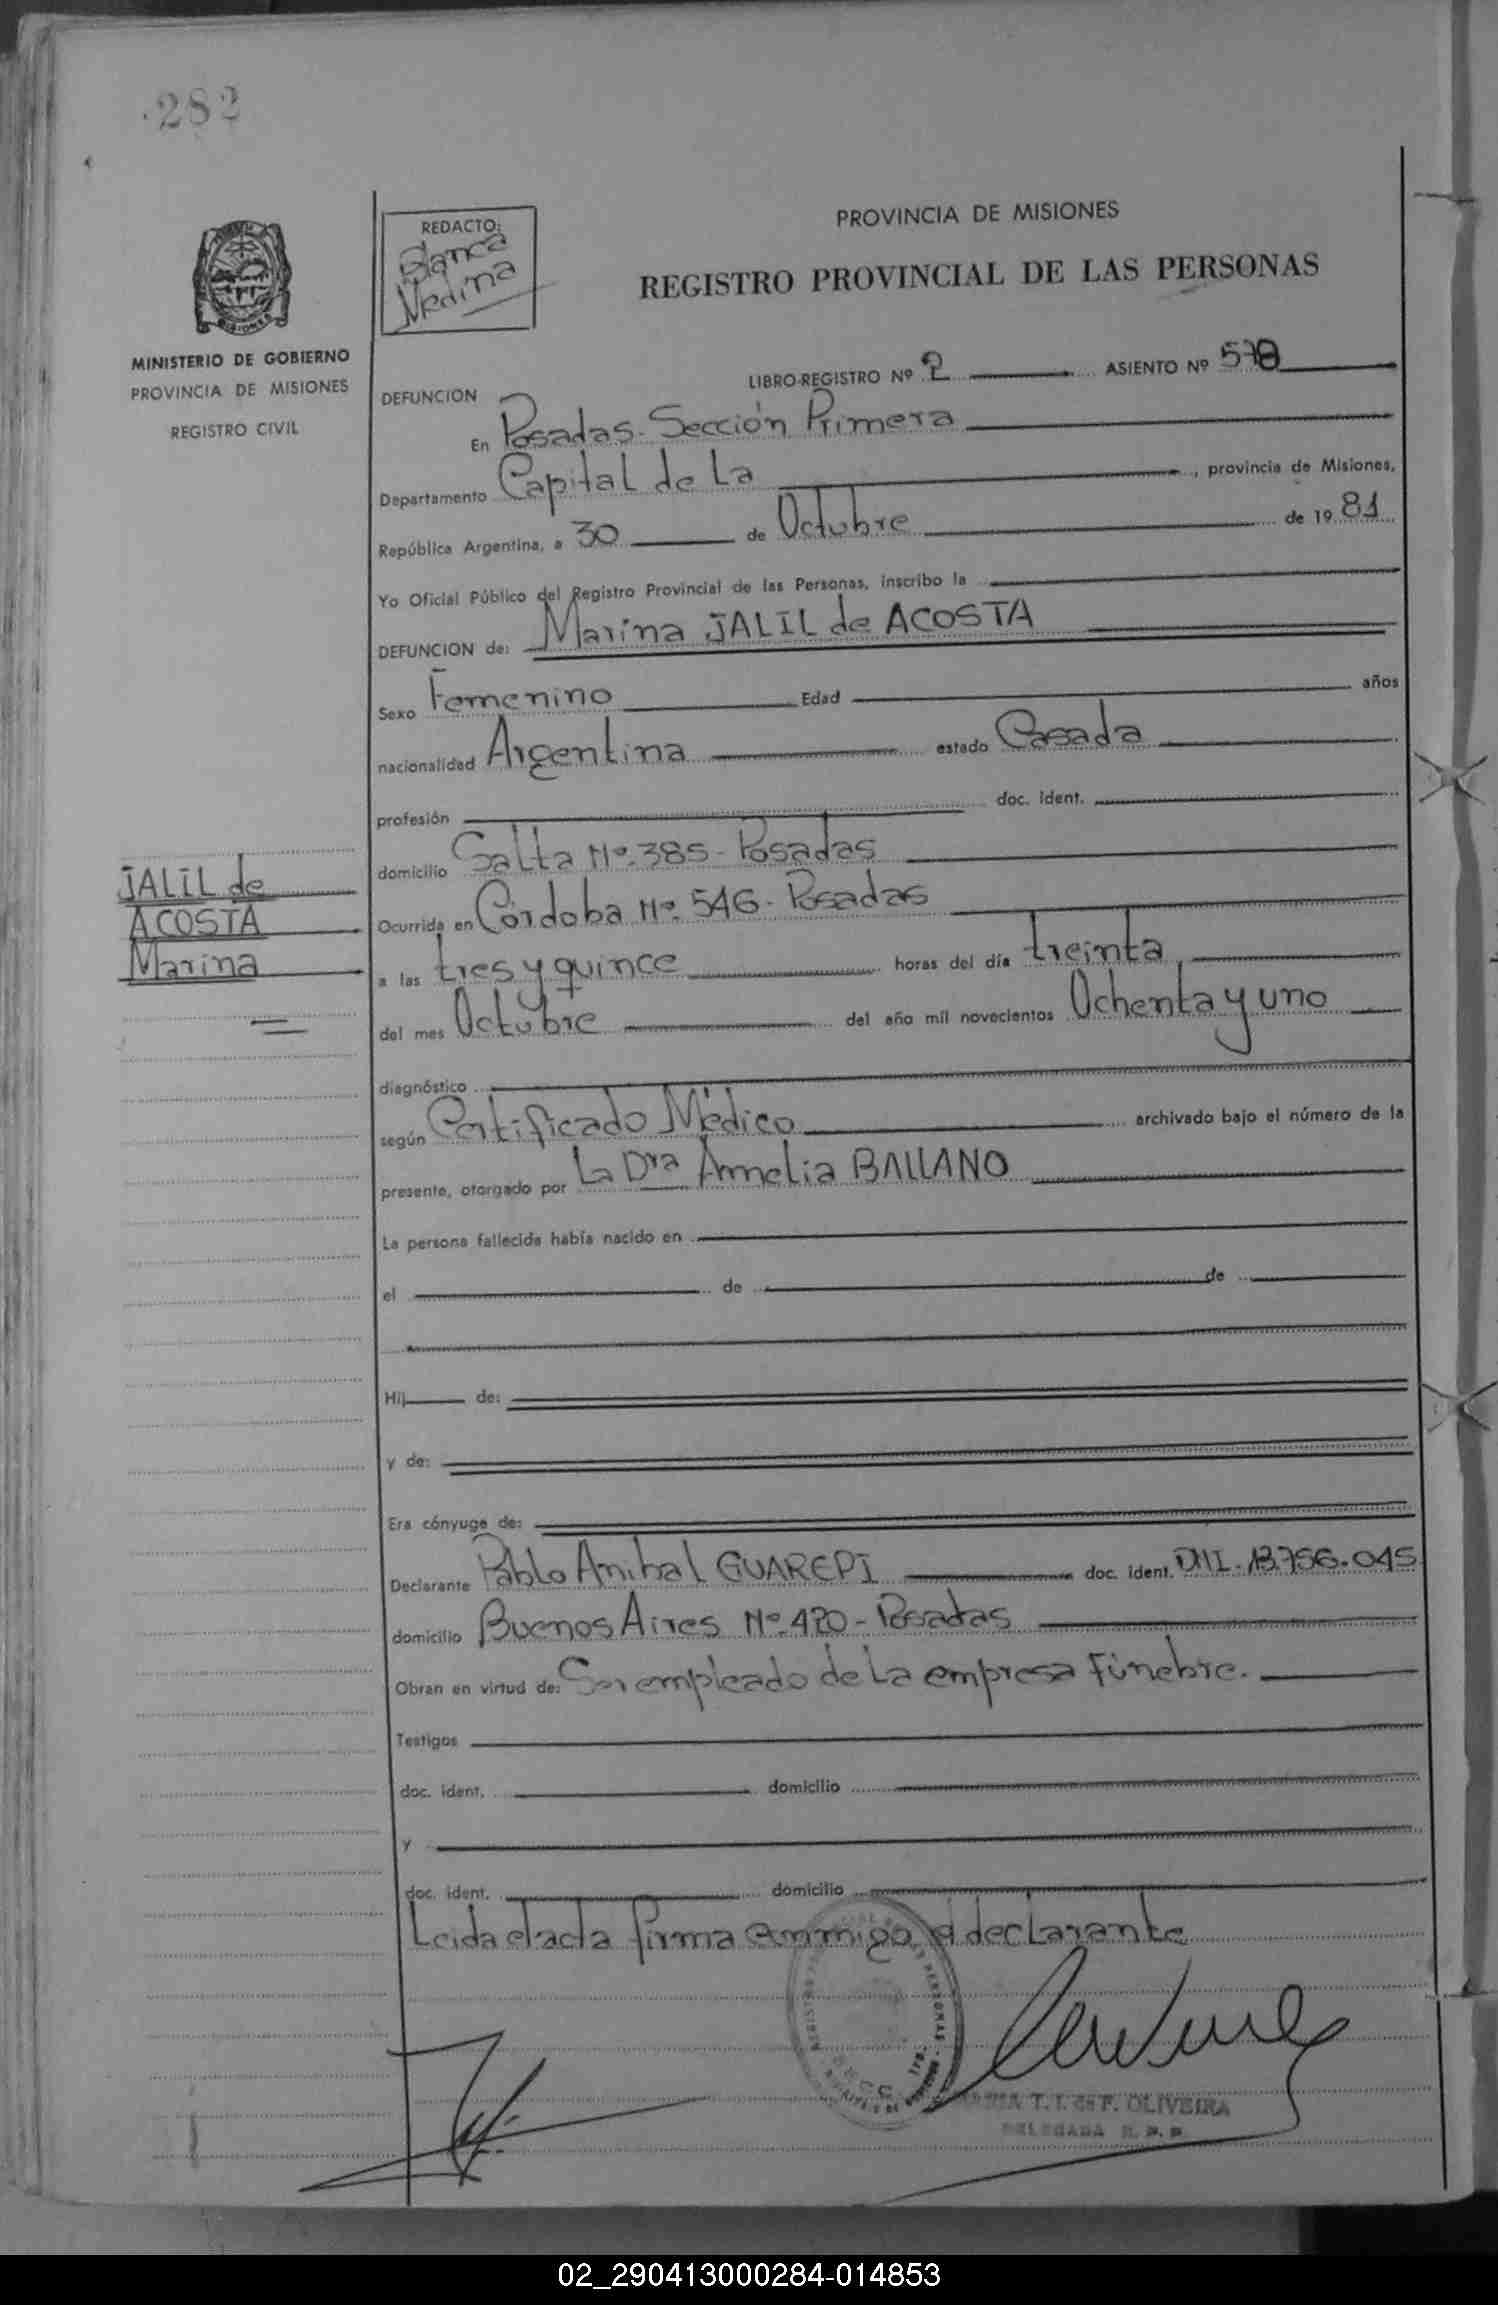 282
REDACTO:
Blanca
Medina
PROVINCIA DE MISIONES
REGISTRO PROVINCIAL DE LAS PERSONAS
MISIONES
MINISTERIO DE GOBIERNO
PROVINCIA DE MISIONES
REGISTRO CIVIL
LIBRO-REGISTRO Nº 2 ASIENTO Nº
DEFUNCION
En Posadas - Sección Primera
Departamento Capital de La, provincia de Misiones,
República Argentina, a 30 de Octubre de 1981
Yo Oficial Público del Registro Provincial de las Personas, inscribo la
DEFUNCION de: Marina JALIL de ACOSTA
Sexo Femenino Edad años
nacionalidad Argentina estado Casada
profesión doc. ident.
domicilio Salta Nº 385 - Posadas
JALIL de
ACOSTA
Marina
Ocurrida en Córdoba Nº 546 - Posadas
a las tres y quince horas del día treinta
del mes Octubre del año mil novecientos Ochenta y uno
diagnóstico
según Certificado Médico archivado bajo el número de la
presente, otorgado por La Dra Amelia BALLANO
La persona fallecida había nacido en
el de de
Hij de:
y de:
Era cónyuge de:
Declarante Pablo Anibal GUAREPI doc. ident. DNI. 13.756.045
domicilio Buenos Aires Nº 420 - Posadas
Obran en virtud de: Ser empleado de La empresa Fúnebre.
Testigos
doc. ident. domicilio
y
doc. ident. domicilio
Leida el acta firma conmigo el declarante
T. I. de F. OLIVEIRA
DELEGADA R. P. P.
02_290413000284-014853